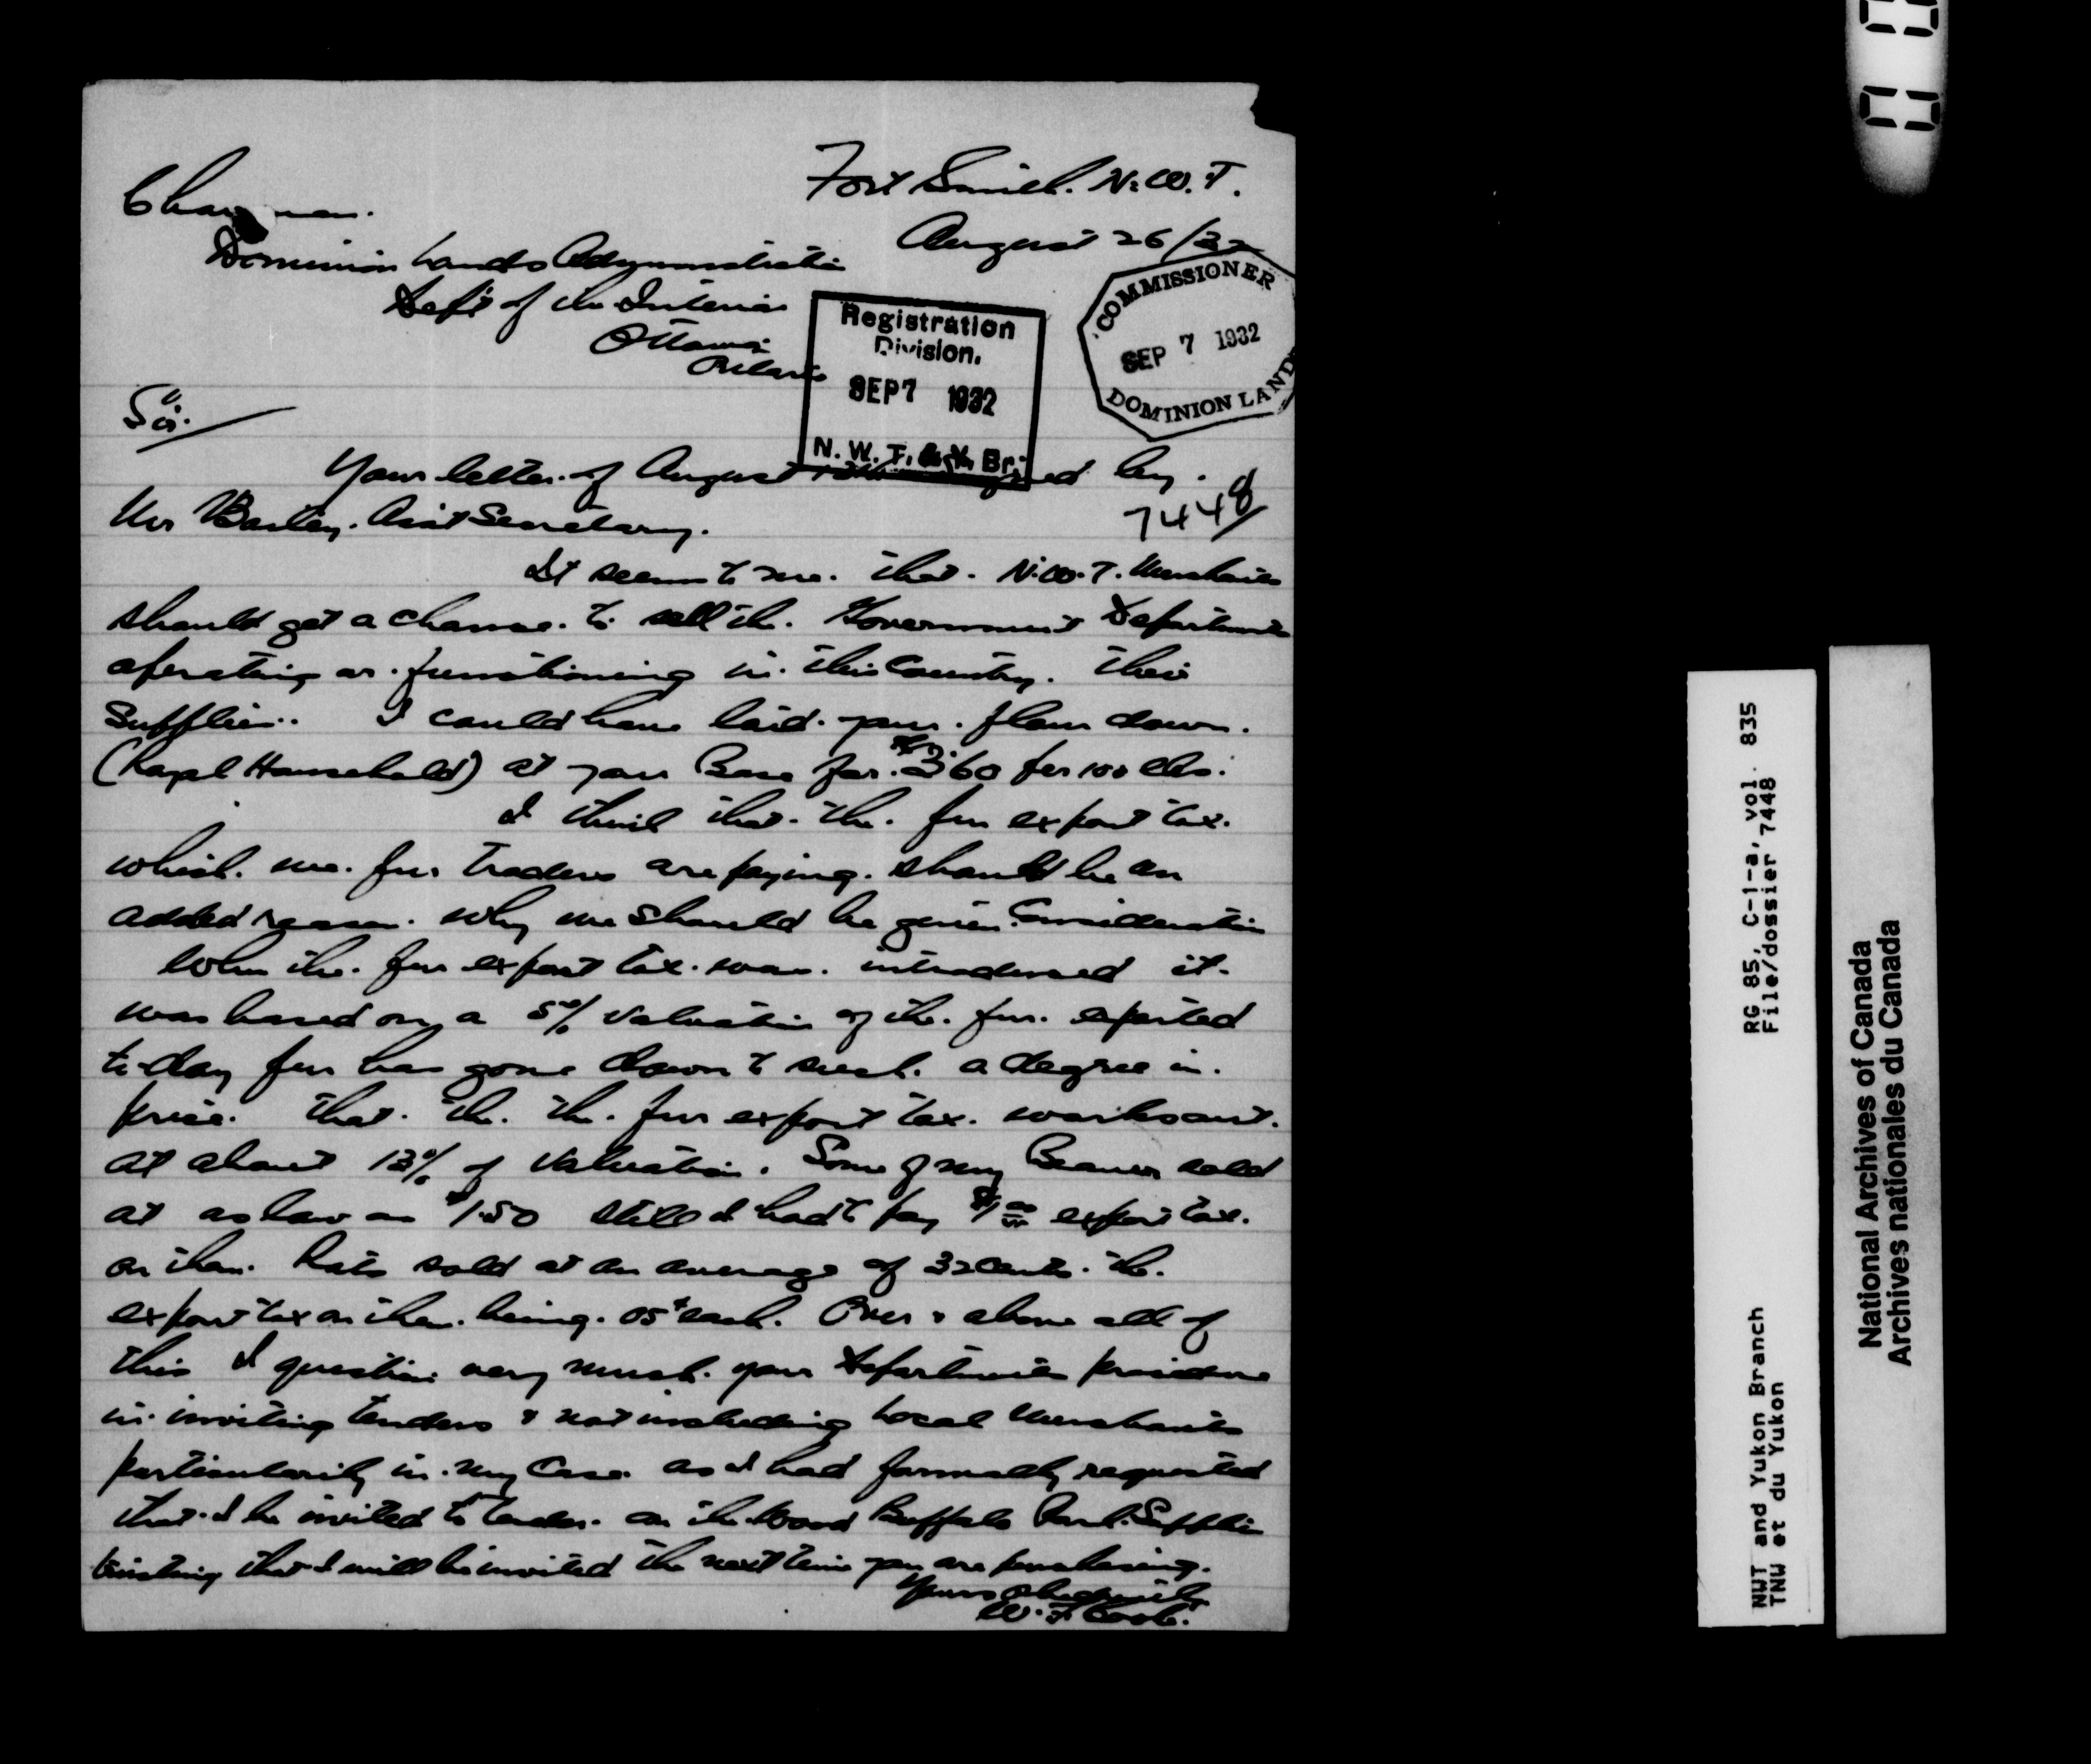 Fort Smith. N.W.T.
August 26/32
Chairman.
Dominion Lands Administration
Dept of the Interior
Ottawa
Ontario
Registration
Division.
SEP 7 1932
N. W. T. & Y. Br.
COMMISSIONER
SEP 7 1932
DOMINION LAND
Sir.
Your letter of August signed by.
7448
Mr Asst Secretary.
It seems to me. that. N.W.T. Merchants
should get a chance. to. sell the. Government Departments
operating or. functioning in. this Country. their
Supplies. I could have laid. your. flour down.
(Royal Household) at your Base for. $3.60 per 100 lbs.
I think that. the. fur export tax.
which. we. fur Traders are paying. should be an
added reason. why we should be given. Consideration
When the. fur export tax. was. introduced it.
was based on a 5% Valuation of the. fur. exported
to-day fur has gone down to such. a degree in.
price. that. the. the. fur export tax. works out.
at about 13% of Valuation. Some of my Beaver sold
at as low as $1.50 still I had to pay $1.00 export tax.
on them. Rats sold at an average of 32 cents. the.
export tax on them. being. 05¢ each. Over & above all of
this I question very much. your Departments procedure
in. inviting tenders & not including Local Merchants
particularily in. my Case. as I had formally requested
that. I be invited to tender. on the Wood Buffalo Park. Supplies
trusting that I will be invited the next time you are purchasing.
Yours obediently
W. F. Cook.
RG 85, C-1-a, vol. 835
File/dossier 7448
NWT and Yukon Branch
TNW et du Yukon
National Archives of Canada
Archives nationales du Canada